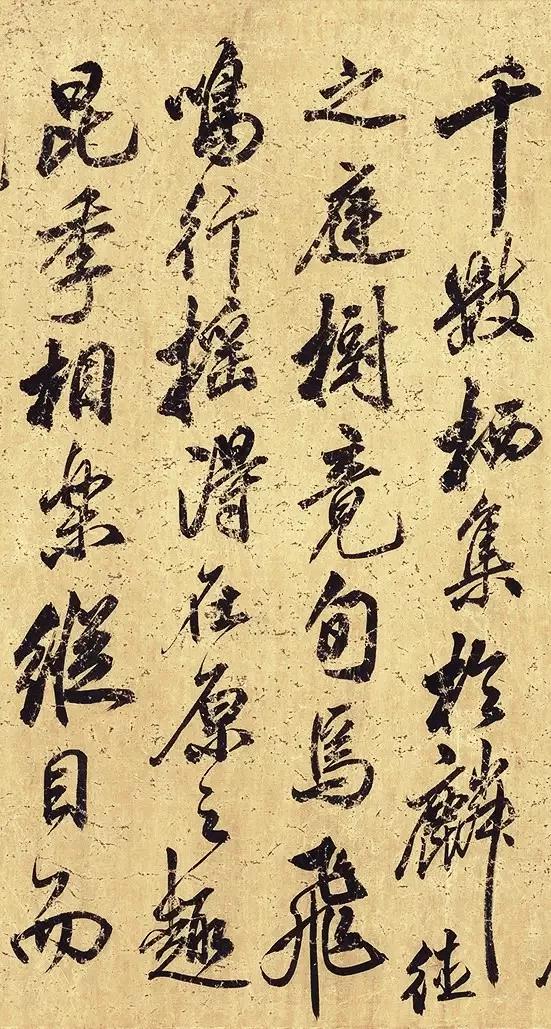 千數栖集於麟德
之庭樹竟旬焉飛
鳴行搖得在原之趣
昆季相樂縱目而